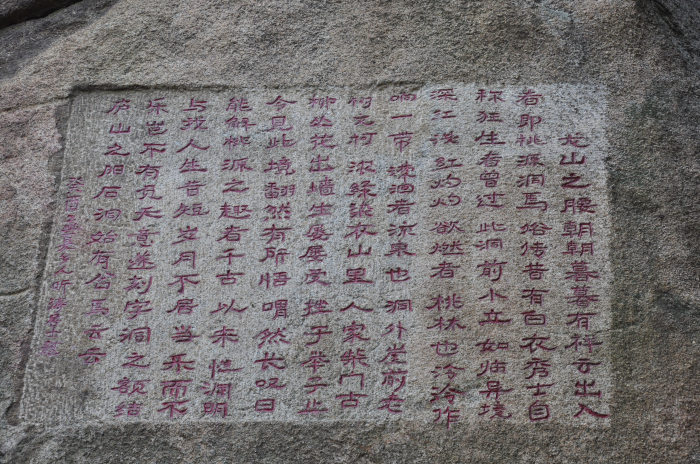 龙山之腰朝朝暮暮有祥云出入
者即桃源洞焉俗传昔有白衣秀士自
称狂生者曾过此洞前小立如临异境
深红浅红灼灼欲燃者桃林也泠泠作
响一带潆洄者流泉也洞外崖前老
树之柯浓绿染衣山里人家柴门古
柳丛花出墙生屡屡受挫于举子
今见此境翻然有所悟喟然长叹曰
能解桃源之趣者千古以来惟渊明
与我人生苦短岁月不居当乐而不
乐岂不有负天意遂刻字洞之额结
庐山之阳石洞始有名焉云云
癸酉